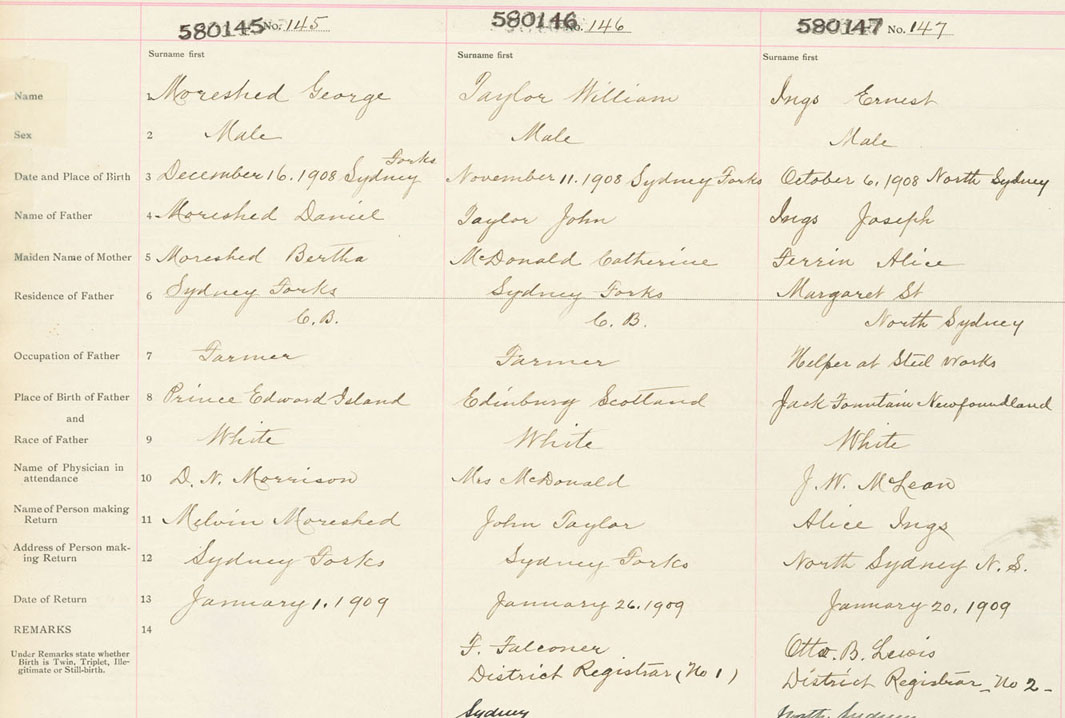 580145 No. 145
580146 No. 146
580147 No. 147
Surname first
Surname first
Surname first
Name 1 Moreshed George
Taylor William
Ings Ernest
Sex 2 Male
Male
Male
Date and Place of Birth 3 December 16. 1908 Sydney Forks
November 11. 1908 Sydney Forks
October 6, 1908 North Sydney
Name of Father 4 Moreshed Daniel
Taylor John
Ings Joseph
Maiden Name of Mother 5 Moreshed Bertha
McDonald Catherine
Ferrin Alice
Residence of Father 6 Sydney Forks
C.B.
Sydney Forks
C.B.
Margaret St
North Sydney
Occupation of Father 7 Farmer
Farmer
Helper at Steel Works
Place of Birth of Father 8 Prince Edward Island
Edinburg Scottland
Jack Fountain Newfoundland
and
Race of Father 9 White
White
White
Name of Physician in
attendance 10 D. N. Morrison
Mrs McDonald
J. W. McLean
Name of Person making
Return 11 Melvin Moreshed
John Taylor
Alice Ings
Address of Person mak-
ing Return 12 Sydney Forks
Sydney Forks
North Sydney N. S.
Date of Return 13 January 1. 1909
January 26. 1909
January 20, 1909
REMARKS 14
Under Remarks state whether
Birth is Twin, Triplet, Ille-
gitimate or Still-birth.
F. Falconer
District Registrar (No 1)
Sydney
Otto. B. Lewis
District Registrar No 2-
North Sydney